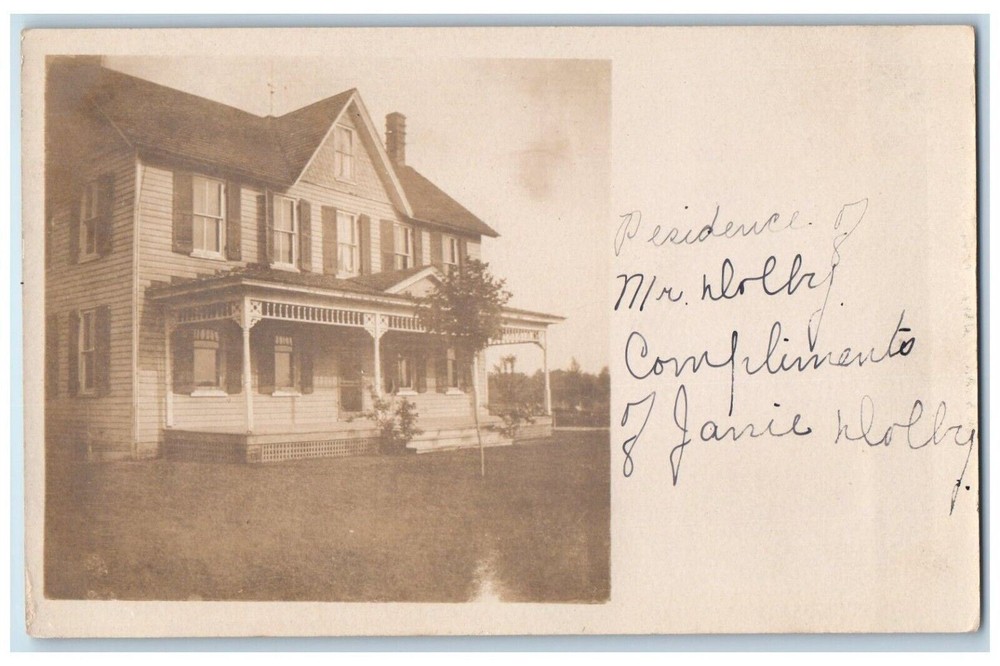 Residence of
Mr. Dolby.
Compliments
of Janie Dolby.